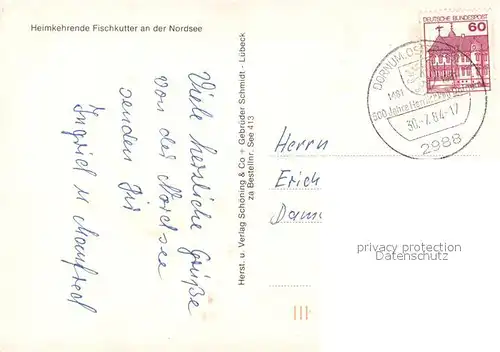 Heimkehrende Fischkutter an der Nordsee
Viele herzliche Grüße
von der Nordsee
senden Dir
Ingrid u Manfred
Herst. u. Verlag Schöning & Co + Gebrüder Schmidt - Lübeck
za Bestellnr.: See 413
DEUTSCHE BUNDESPOST
60
DORNUM, OS
1481
500 Jahre
30.-7.84-17
2988
Herrn
Erich
privacy protection
Datenschutz